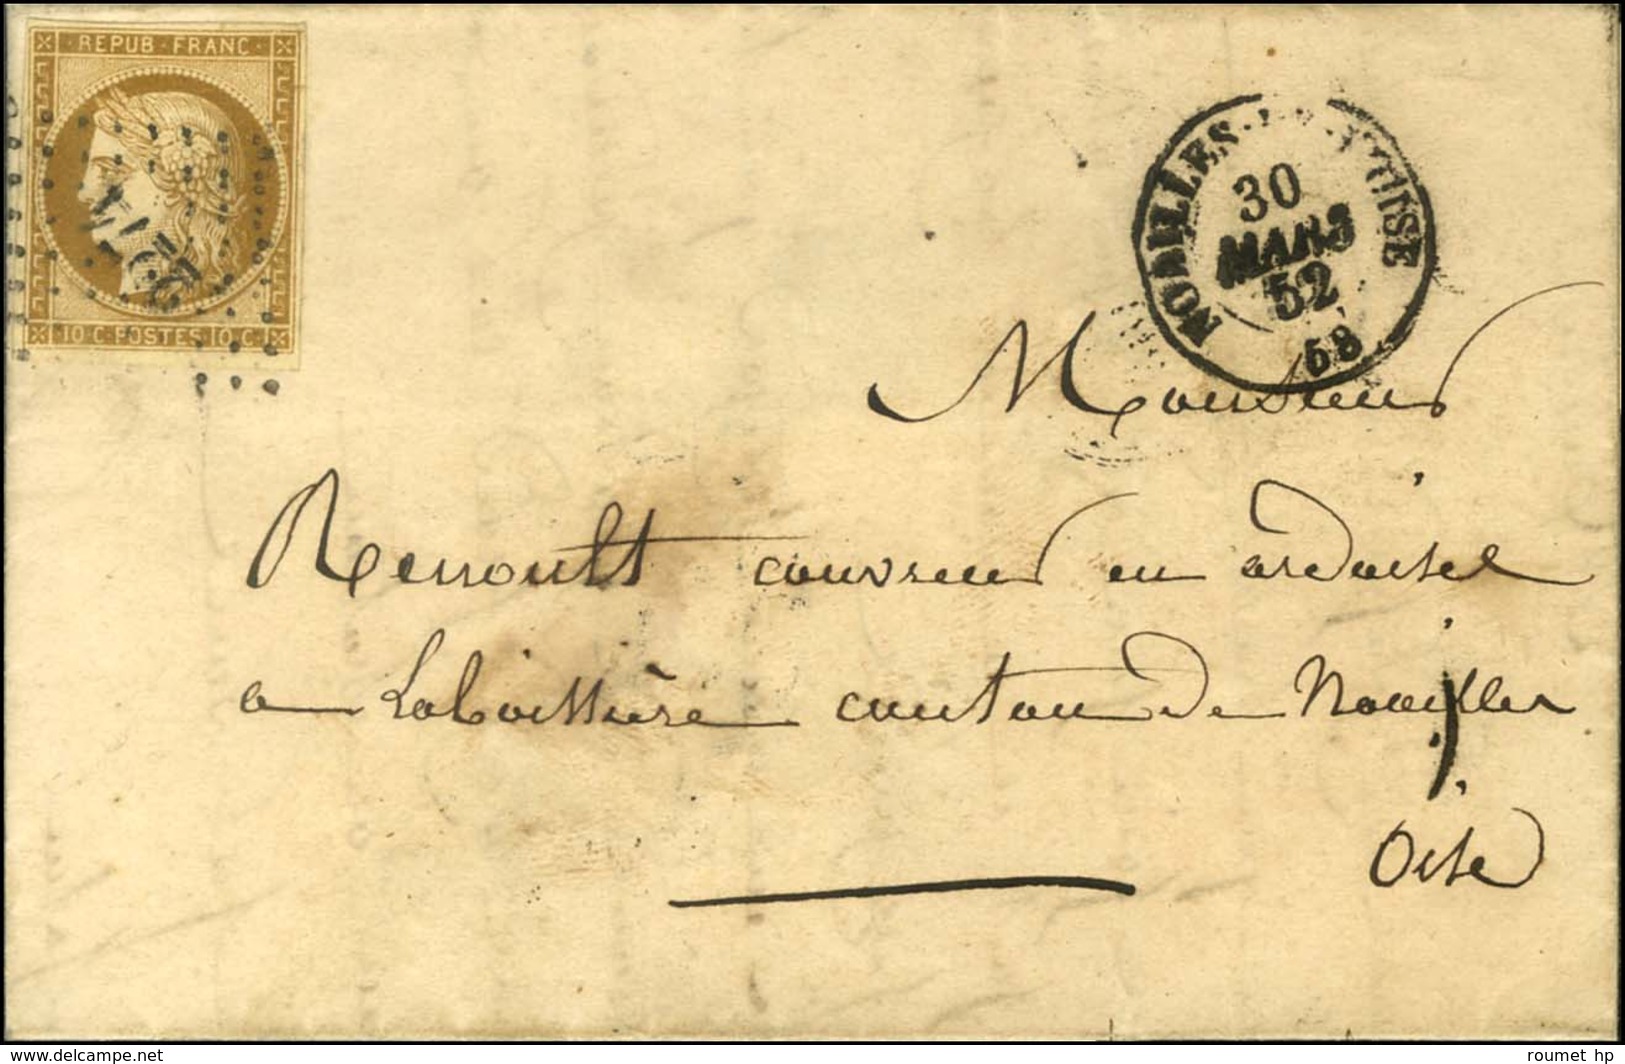 REPUB · FRANC
10 · C · POSTES · 10 · C ·
NOAILLES · OISE
30
MARS
52
58
Monsieur
Renoult couvreur en ardoise
a Laboissière canton de Noailles
Oise
www.delcampe.net
roumet hp